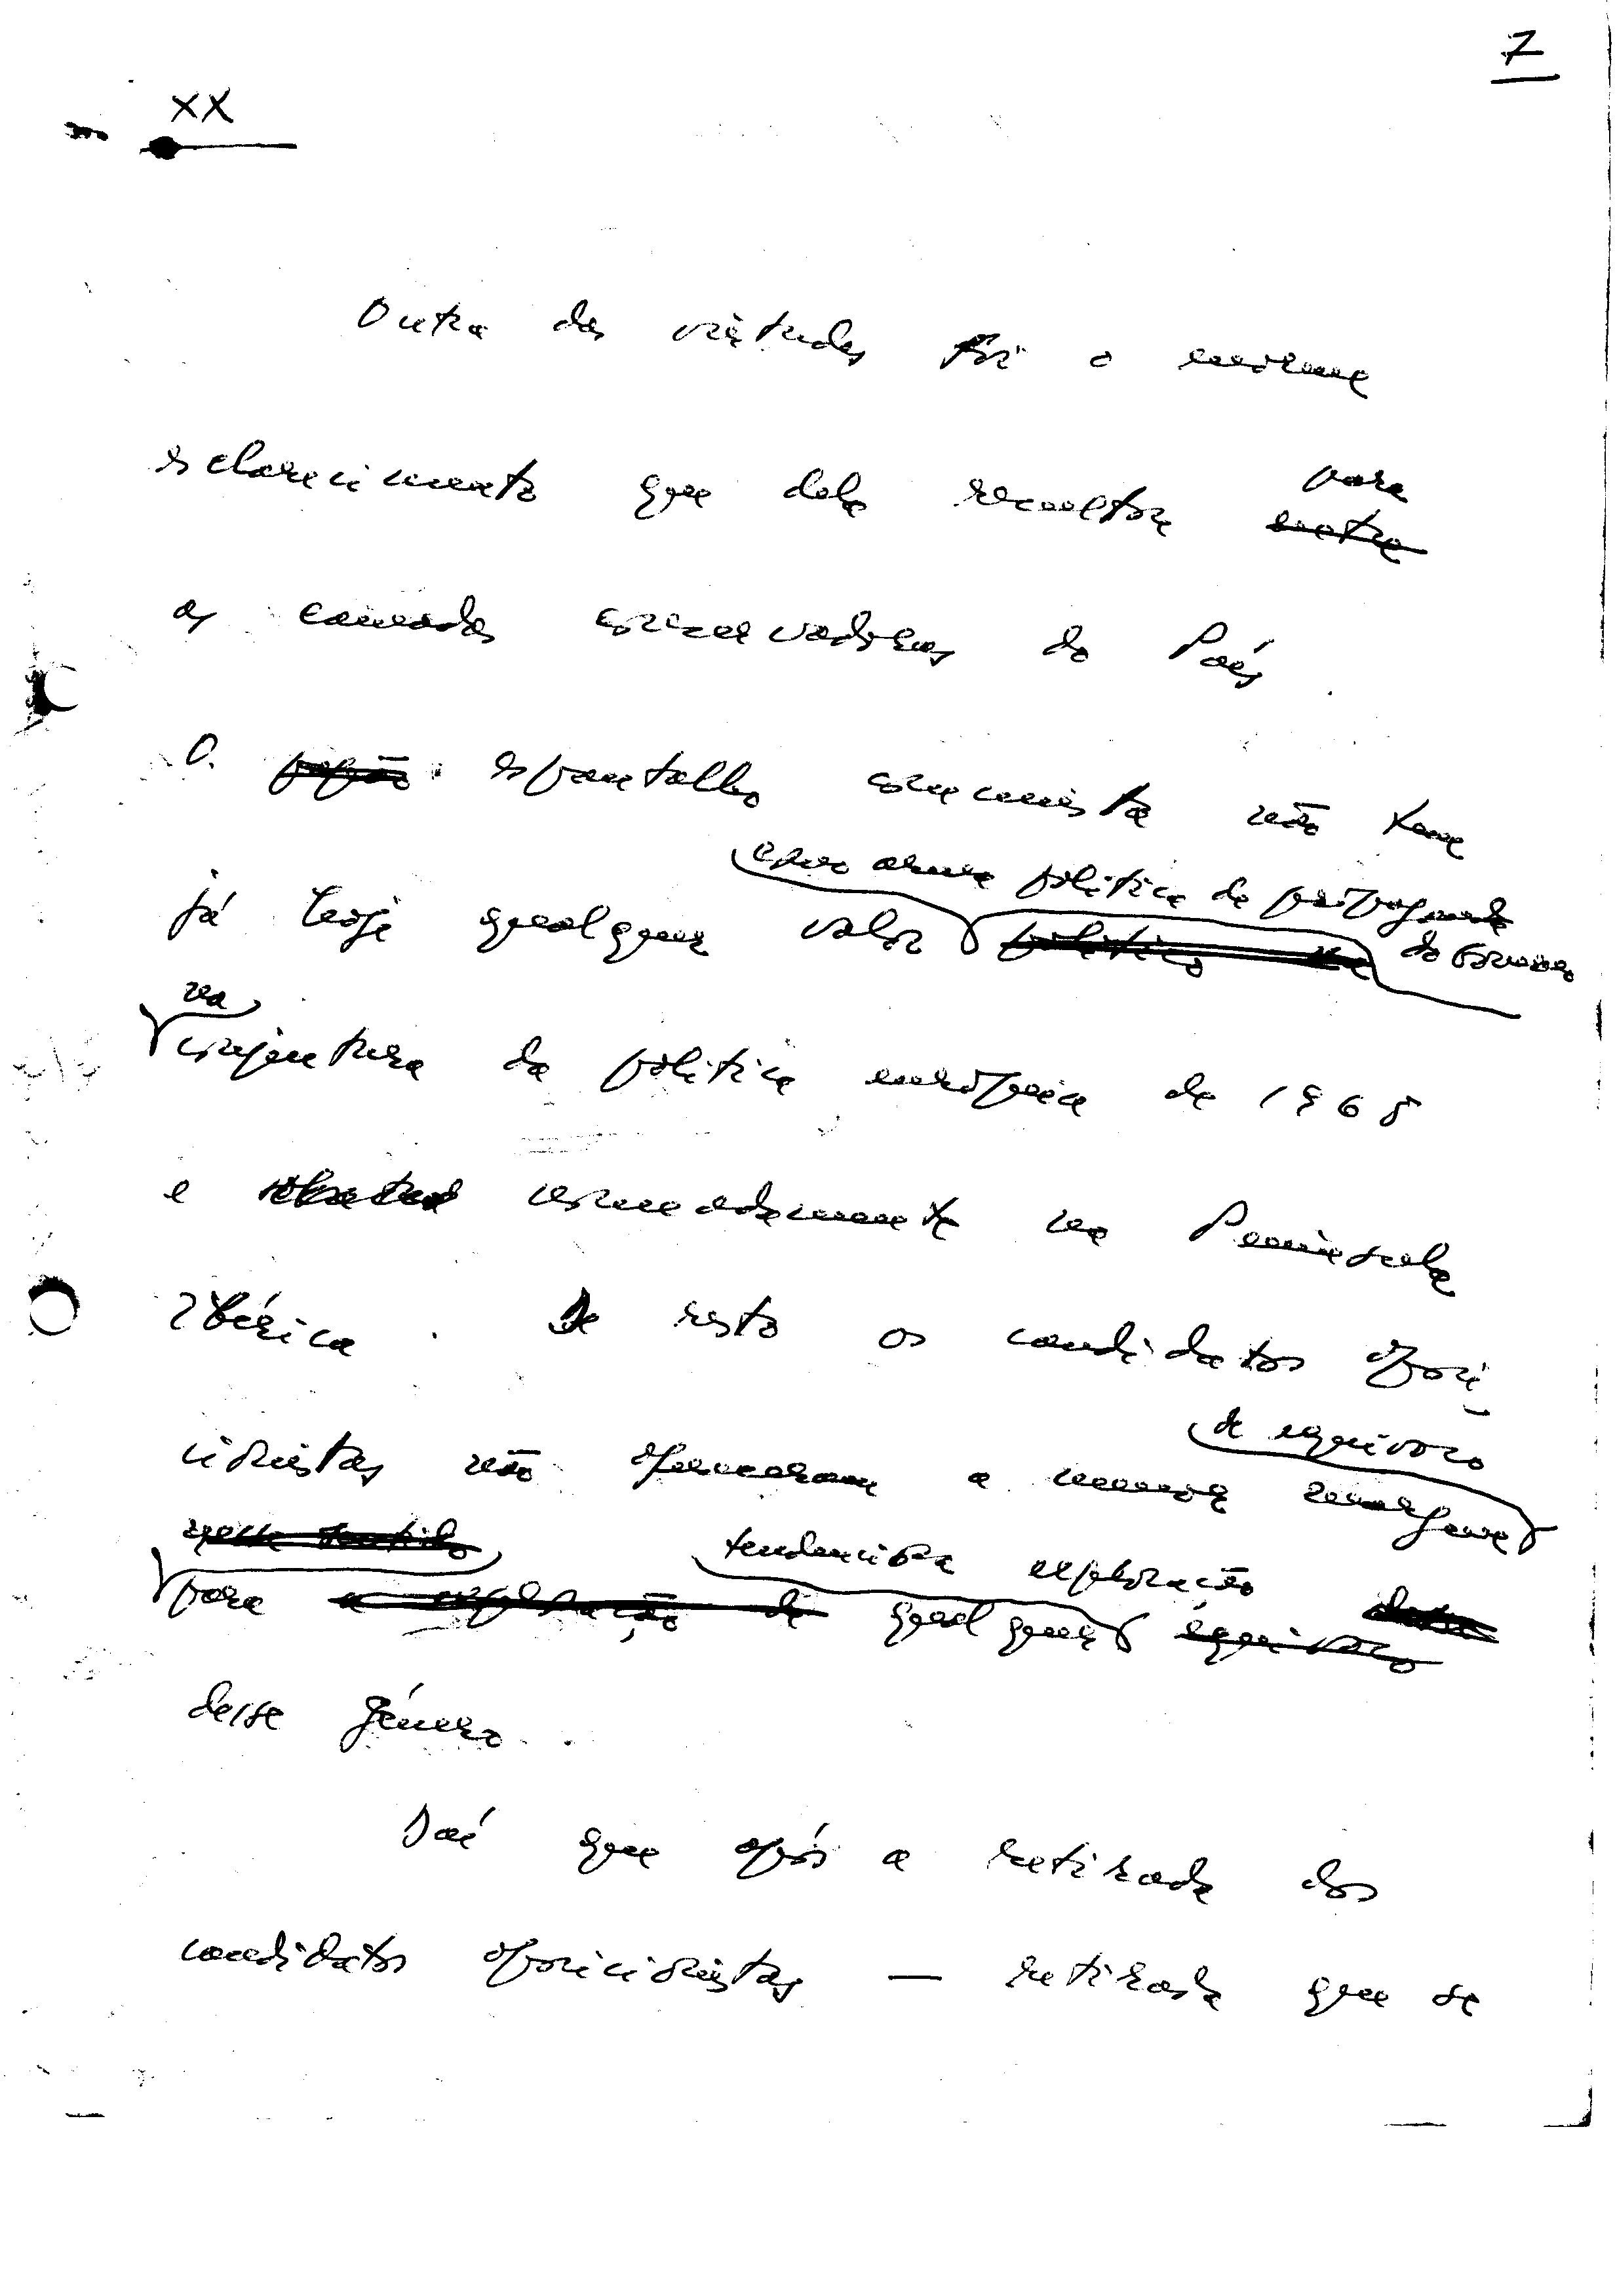 7
XX
Outra das virtudes foi o enorme
esclarecimento que dela resultou para
as camadas conservadoras do País.
O espantalho comunista não tem
como arma política de propaganda
já hoje qualquer valor do Governo
na
conjuntura da política europeia de 1965
e nomeadamente na Península
Ibérica. De resto os candidatos oposi-
de equívoco
cionistas não ofereceram a menor margem
tendenciosa exploração
para qualquer
desse género.
Daí que após a retirada dos
candidatos oposicionistas — retirada que se